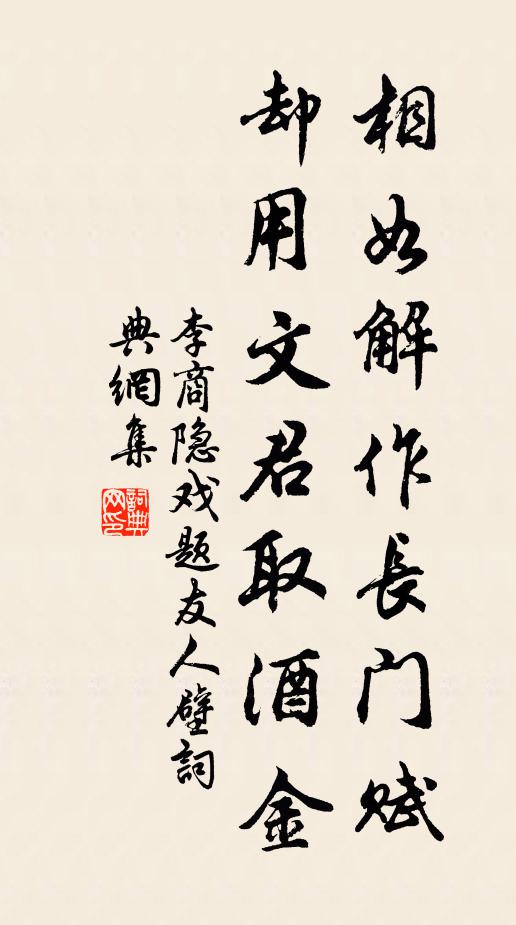 相如解作長门赋
却用文君取酒金
李商隐戏题友人壁詞
典網集
詞典网印